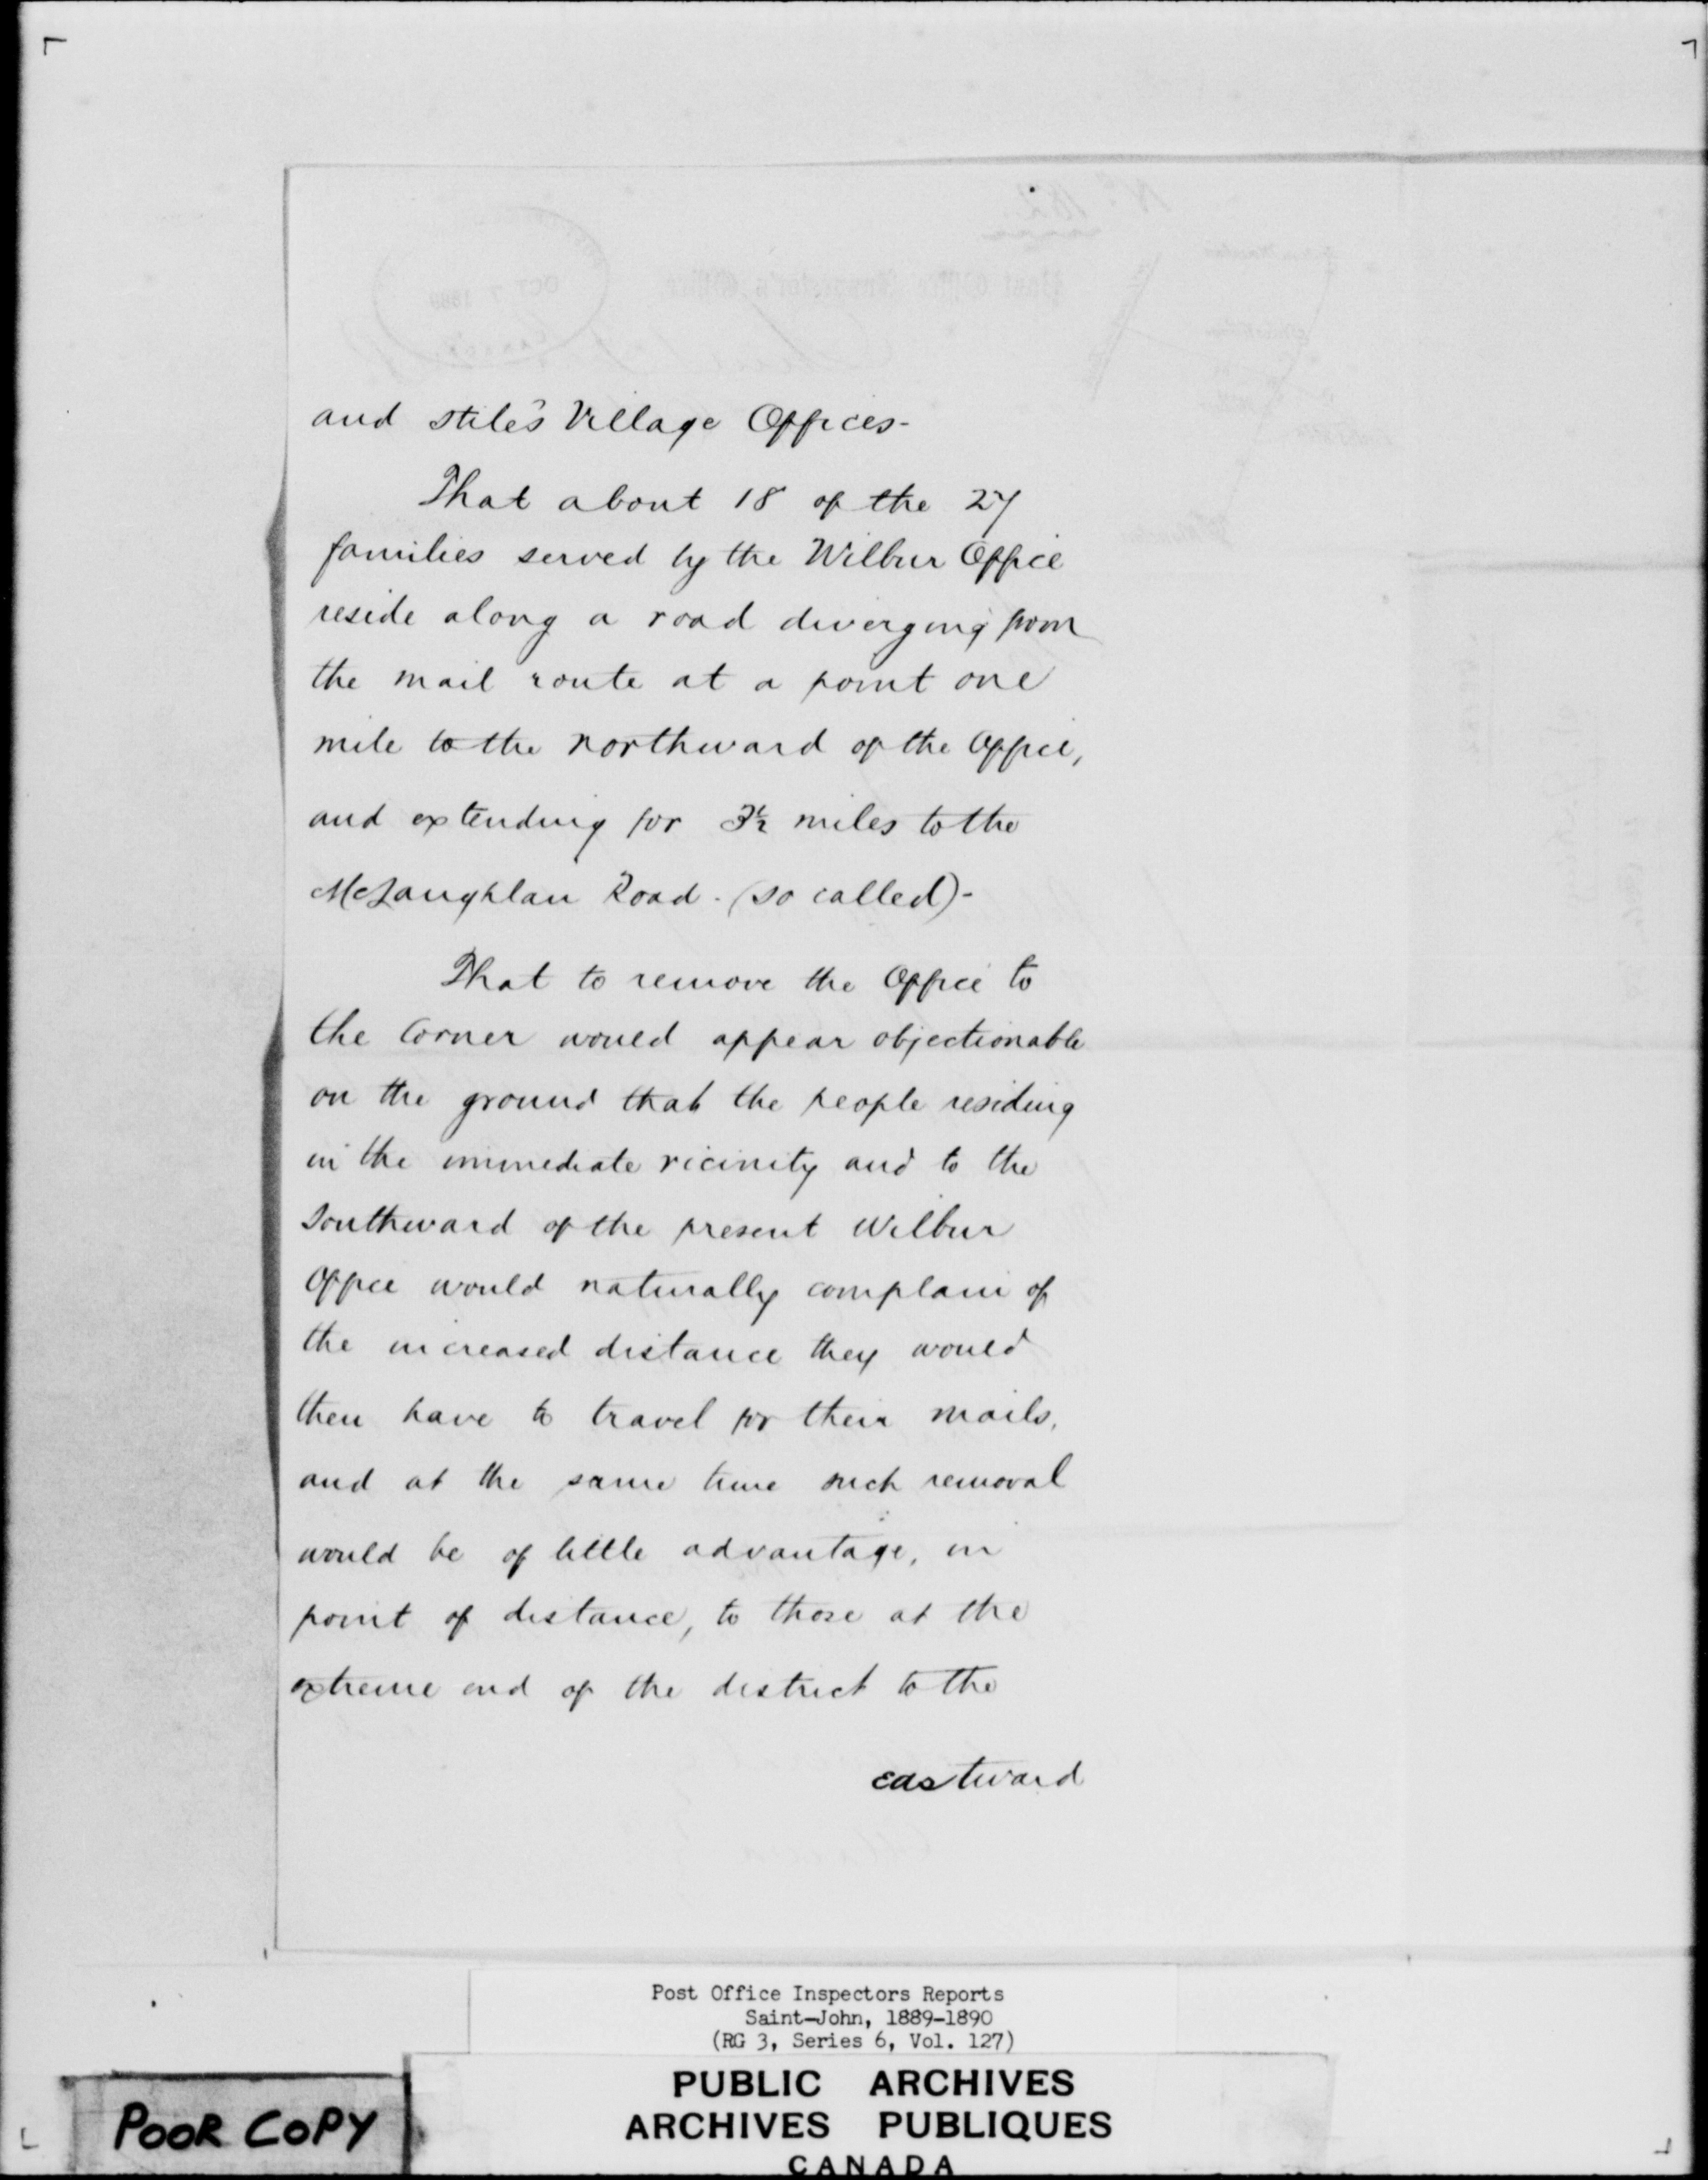 and Stile's Village Offices-
That about 18 of the 27
families served by the Wilbur Office
reside along a road diverging from
the mail route at a point one
mile to the northward of the Office,
and extending for 3½ miles to the
McLaughlan Road. (so called)-
That to remove the Office to
the Corner would appear objectionable
on the ground that the people residing
in the immediate vicinity and to the
Southward of the present Wilbur
Office would naturally complain of
the increased distance they would
then have to travel for their mails,
and at the same time such removal
would be of little advantage, in
point of distance, to those at the
extreme end of the district to the
eastward
Post Office Inspectors Reports
Saint-John, 1889-1890
(RG 3, Series 6, Vol. 127)
PUBLIC ARCHIVES
ARCHIVES PUBLIQUES
CANADA
POOR COPY